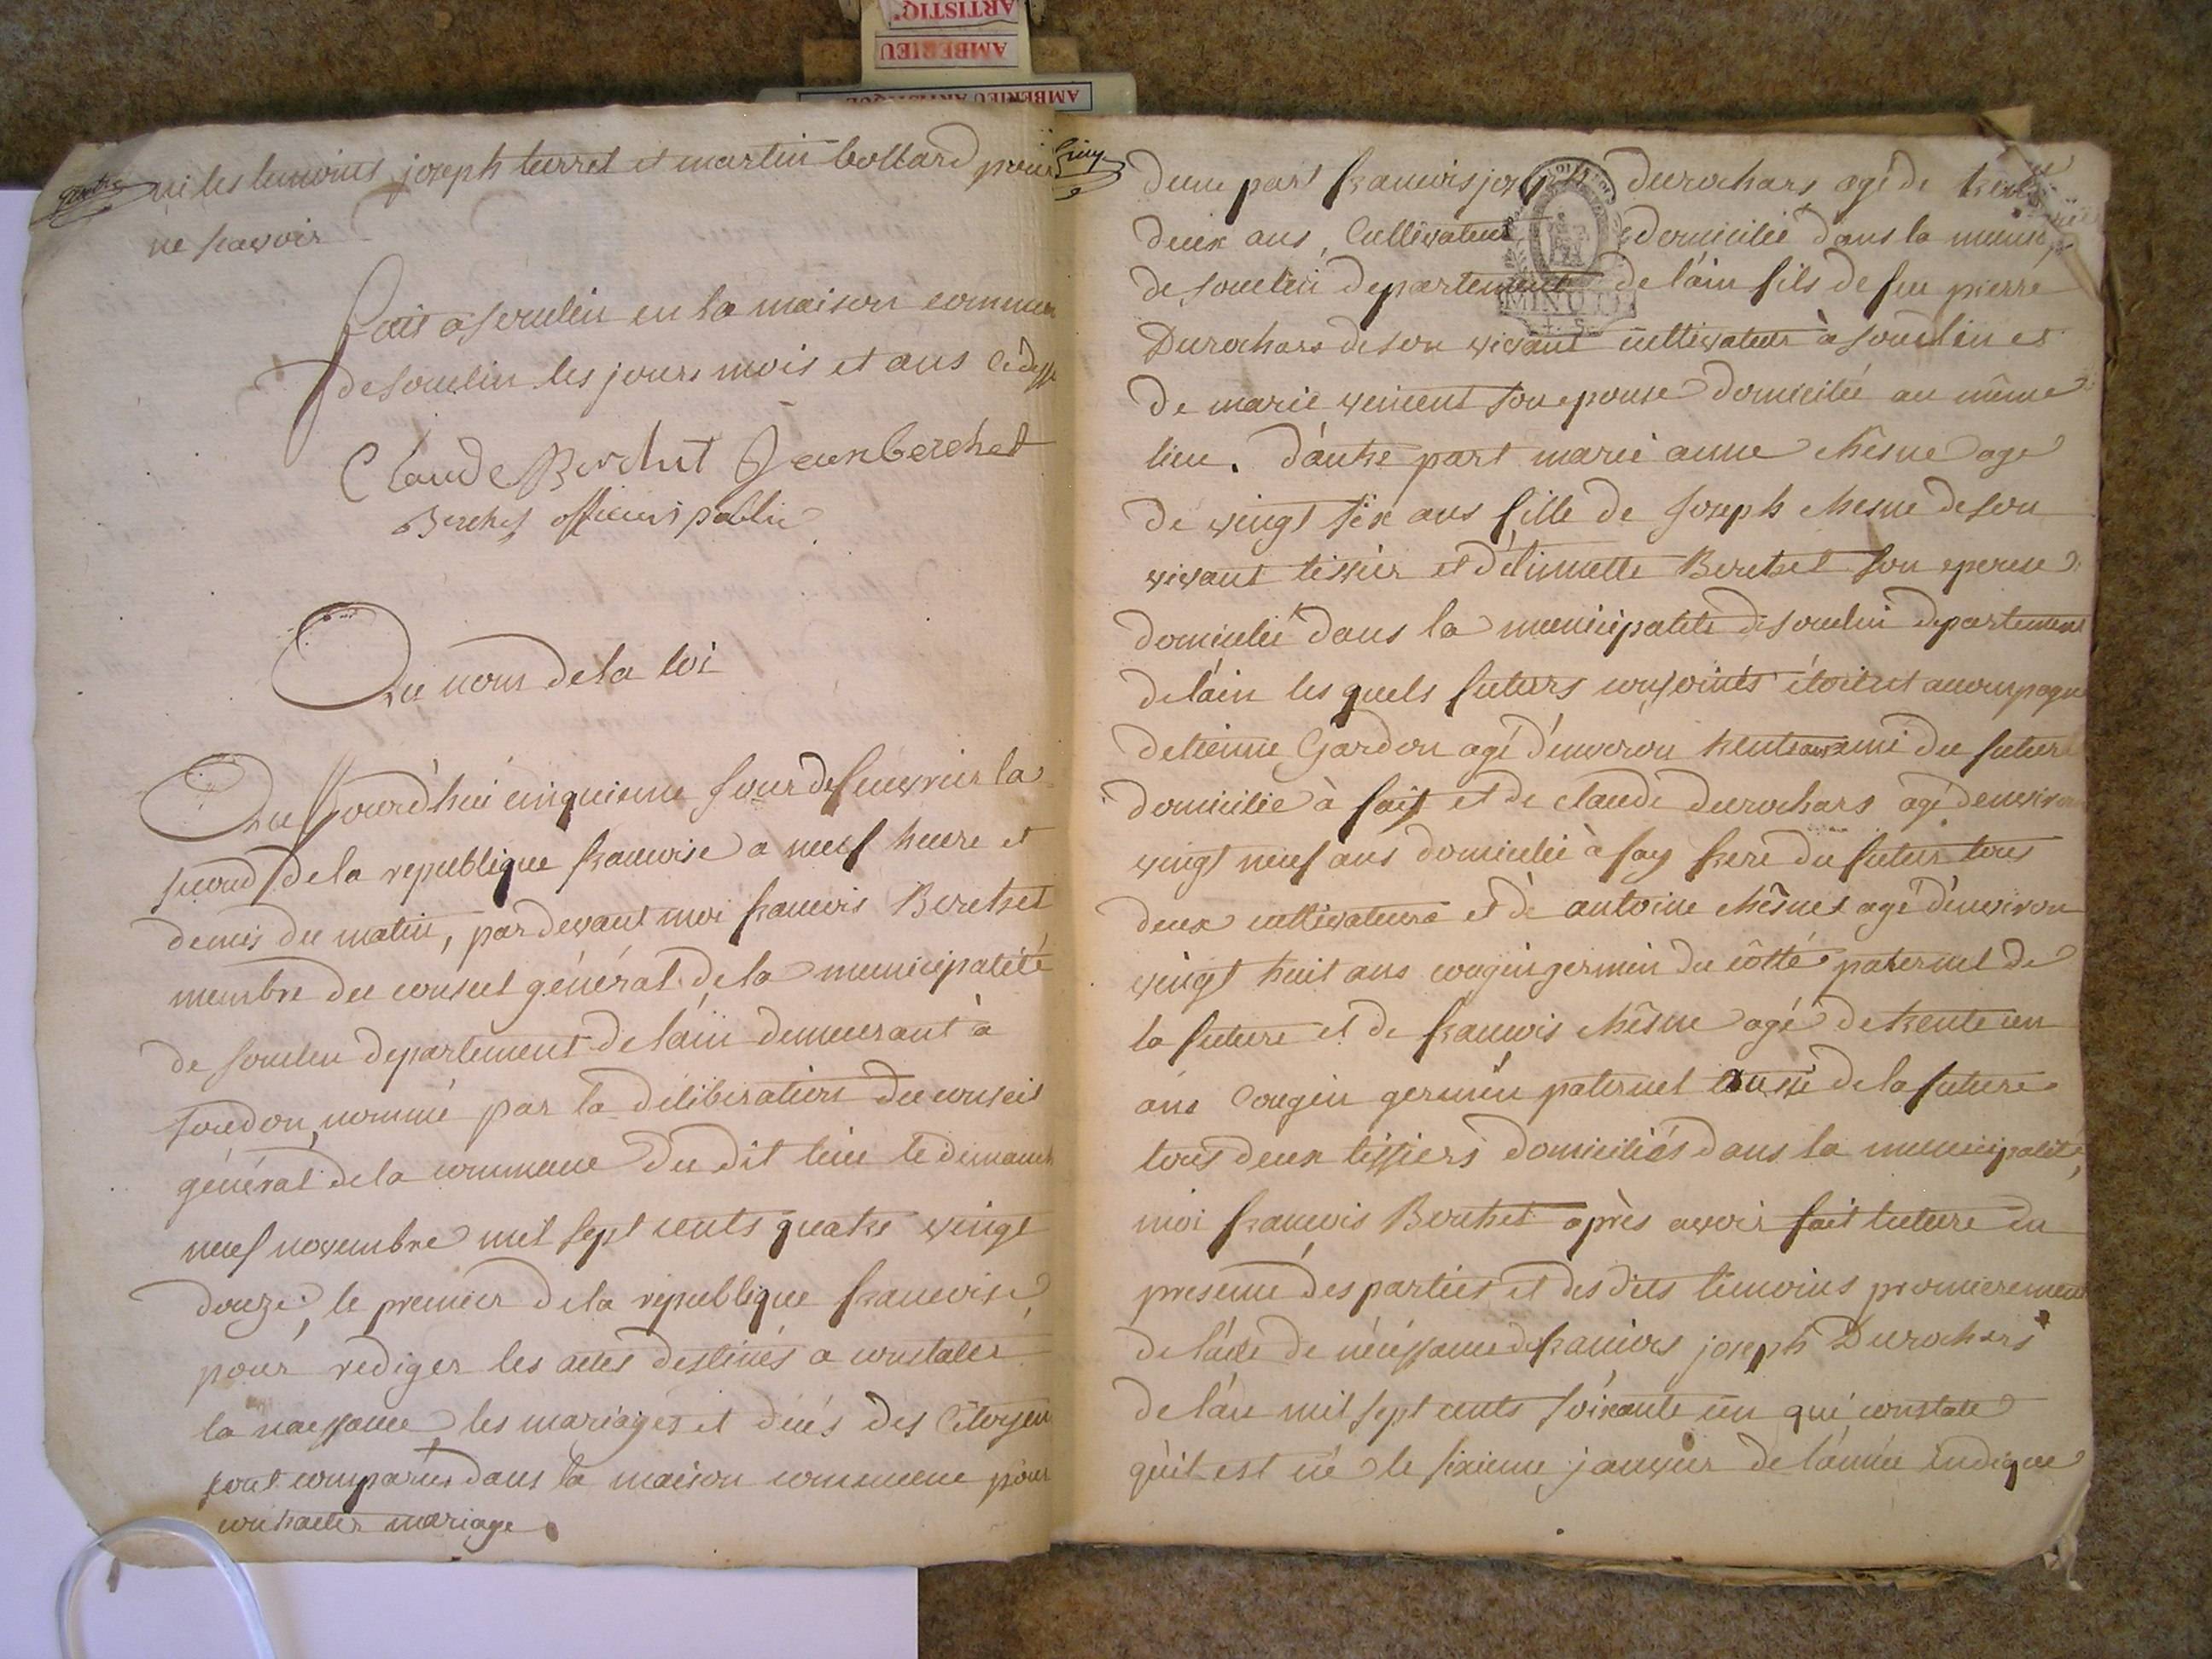 ARTISTIQ
AMBERIEU
AMBERIEU ARTISTIQUE
quatre
ni les temoins joseph terret et martin bollard pour
ne scavoir
fait a soudin en la maison commun
de soudin les jours mois et ans cidess
Claude Berchet Jean berchet
Berchet officier public
Au nom de la loi
Aujourd'hui cinquieme jour de feuvrier la
second de la republique francoise a neuf heure et
demis du matin, par devant moi francois Berthet
membre du conseil général de la municipalité
de soudin departement de láin demeurant à
soudon, nommé par la déliberation du conseil
général de la commune du dit lieu le dimanch
neuf novembre mil sept cents quatre vingt
douze, le premier de la republique francoise,
pour rediger les actes destinés a constater
la naissance les mariages et décés des Citoyen
sont comparus dans la maison commune pour
contracter mariage
cinq
dune part francois joseph durochars agé de trente
deux ans, Cultivateur domicilié dans la munic
de soudin departement de láin fils de feu pierre
Durochars de son vivant cultivateur à soudin et
de marie vincent son epouse domicilié au même
lieu. dáutre part marie anne chêsne age
de vingt six ans fille de Joseph chesne de son
vivant tissier et détiennette Berthet son epouse
domicilié dans la municipalité de soudin departement
de láin les quels futurs conjoints étoient accompagné
detienne Gardon agé dénviron trente ans ami du futur
domicilié à fait et de claude durochars agé denviron
vingt neuf ans domicilié à fay frere du futur tous
deux cultivateurs et de antoine chêsnes agé dénviron
vingt huit ans cougin germin du côtté paternel de
la future et de francois chêsne agé de trente un
ans Cougin germin paternel aussi de la future
tous deux tissiers domiciliés dans la municipalité,
moi francois Berthet après avoir fait lecture en
presence des parties et des dits temoins premierement
de lácte de néissance de francois joseph Durochers
de lán mil sept cents soixante un qui constate
qu'il est né le sixieme janvier de lánnée indiqué